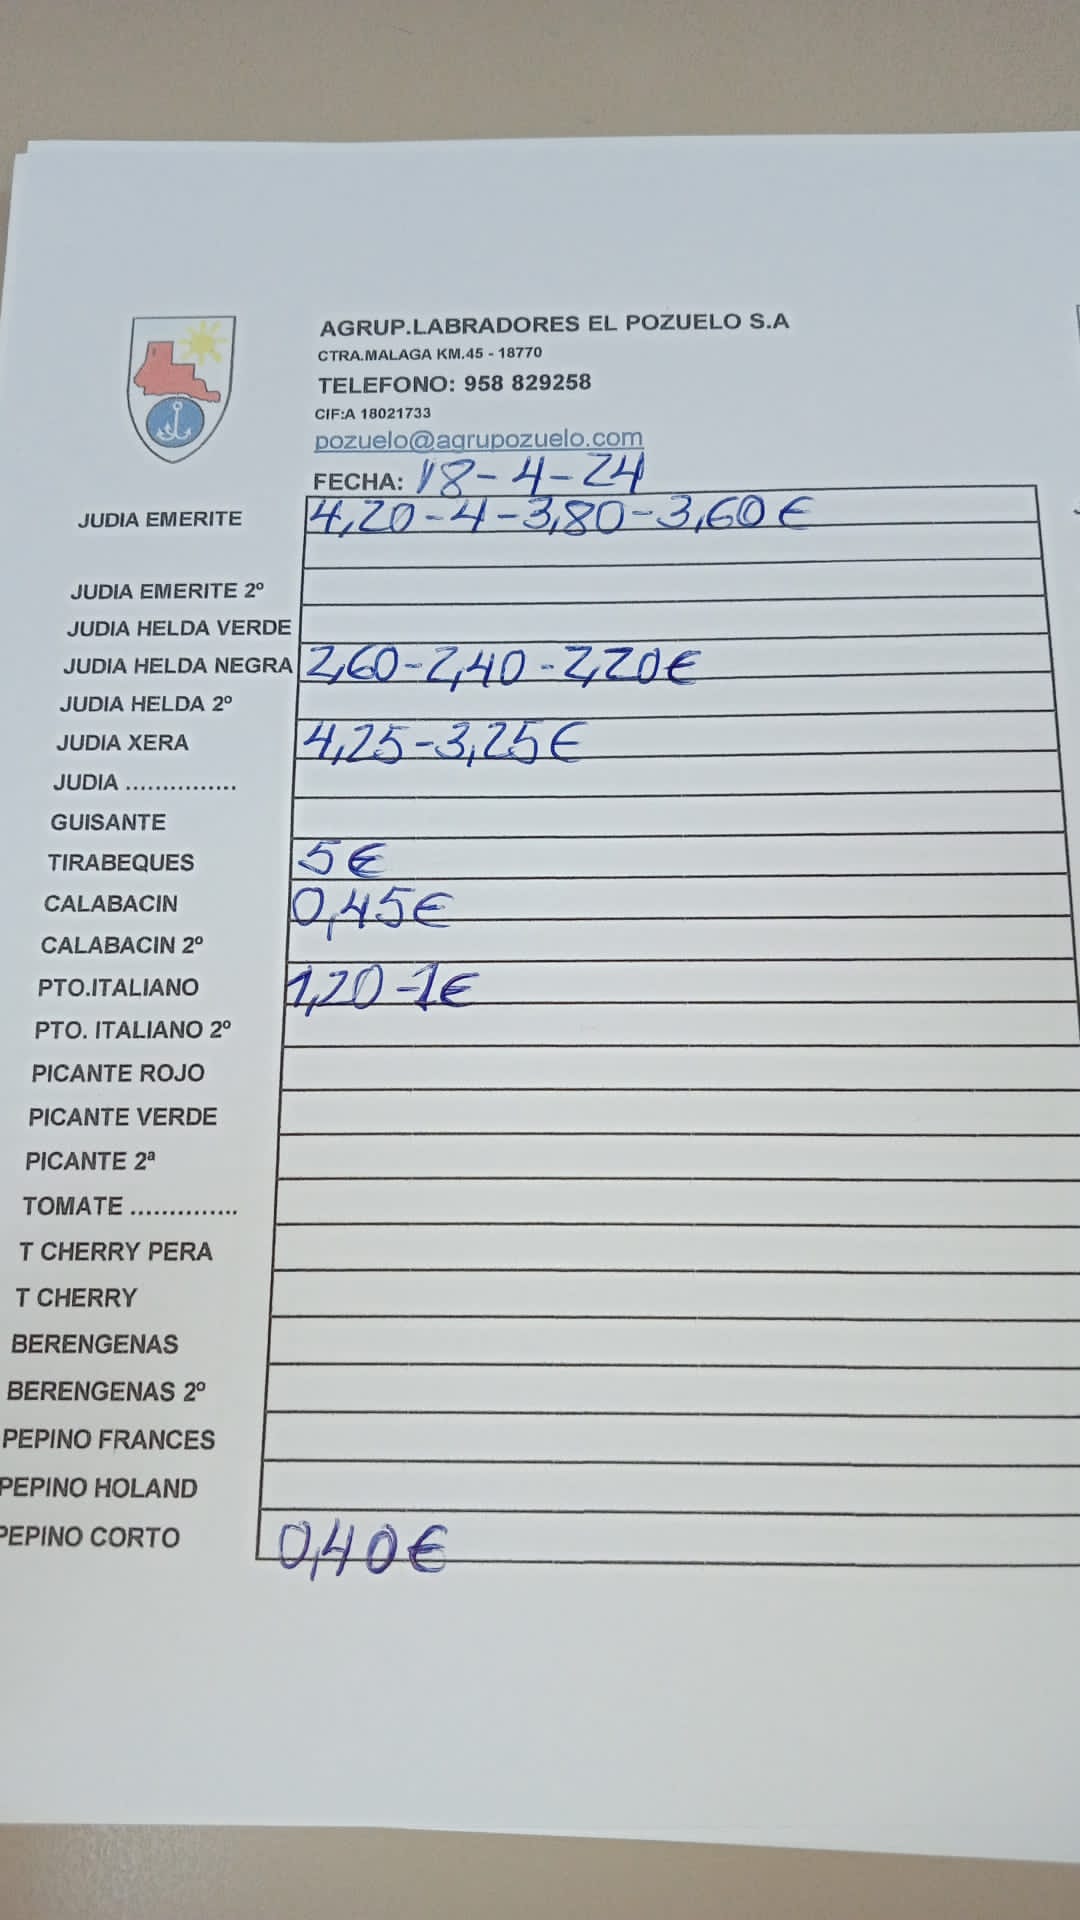 AGRUP.LABRADORES EL POZUELO S.A
CTRA.MALAGA KM.45 - 18770
TELEFONO: 958 829258
CIF:A 18021733
pozuelo@agrupozuelo.com
FECHA: 18-4-24
JUDIA EMERITE 4,20-4-3,80-3,60€
JUDIA EMERITE 2º
JUDIA HELDA VERDE
JUDIA HELDA NEGRA 2,60-2,40-2,20€
JUDIA HELDA 2º
JUDIA XERA 4,25-3,25€
JUDIA ...............
GUISANTE
TIRABEQUES 5€
CALABACIN 0,45€
CALABACIN 2º
PTO.ITALIANO 1,20-1€
PTO. ITALIANO 2º
PICANTE ROJO
PICANTE VERDE
PICANTE 2ª
TOMATE ..............
T CHERRY PERA
T CHERRY
BERENGENAS
BERENGENAS 2º
PEPINO FRANCES
PEPINO HOLAND
PEPINO CORTO 0,40€